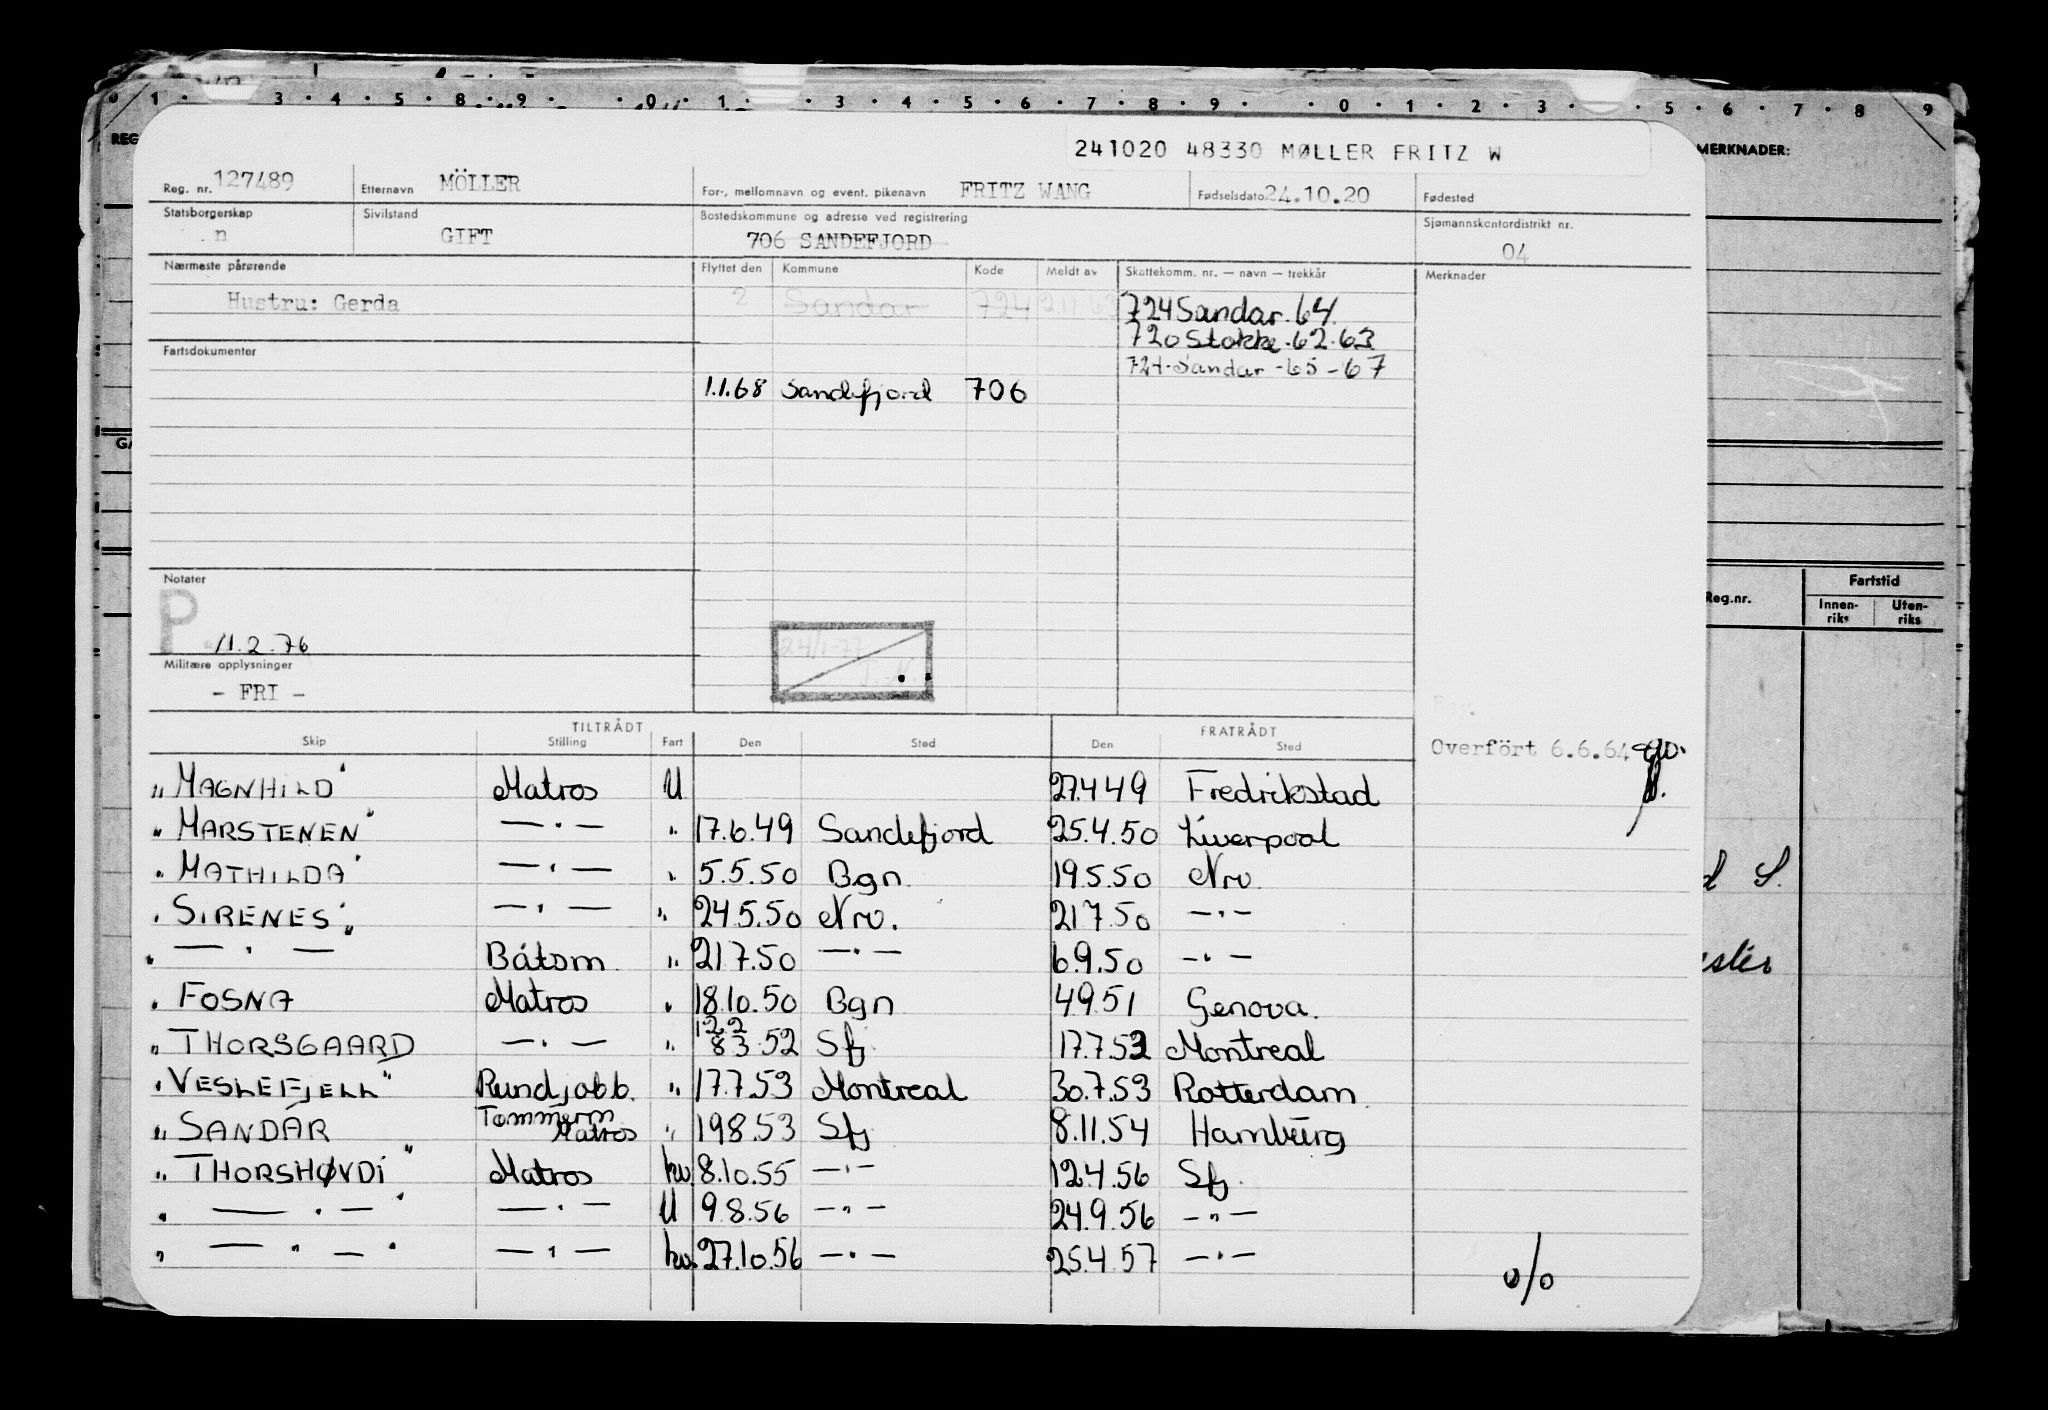 1 3 4 5 8 9 0 1 3 4 5 6 7 8 9 0 1 2 3 5 6 7 8 9
REG
MERKNADER:
241020 48330 MØLLER FRITZ W
Reg. nr. 127489 Etternavn MÖLLER For-, mellomnavn og event. pikenavn FRITZ WANG Fødselsdato 24.10.20 Fødested
Statsborgerskap Sivilstand Bostedskommune og adresse ved registrering Sjømannskontordistrikt nr.
n GIFT 706 SANDEFJORD 04
Nærmeste pårørende Flyttet den Kommune Kode Meldt av Skattekomm. nr. — navn — trekkår Merknader
Hustru: Gerda 2 Sandar 724 724 Sandar. 64.
720 Stokke. 62. 63
Fartsdokumenter 724. Sandar - 65 - 67
1.1.68 Sandefjord 706
GA
Notater
P 11.2.76
24/1-77
Militære opplysninger
- FRI -
Reg.nr. Fartstid
Innen-riks Uten-riks
TILTRÅDT FRATRÅDT
Skip Stilling Fart Den Sted Den Sted
Overfört 6.6.64
„MAGNHILD" Matros U 27.4 49 Fredrikstad
„MARSTENEN" — " — " 17.6.49 Sandefjord 25.4.50 Liverpool
"MATHILDA" — " — " 5.5.50 Bgn. 19.5.50 Nrv.
"SIRENES" — " — " 24.5.50 Nrv. 21 7.50 — " —
" — " — Båtsm. " 21 7.50 — " — 6.9.50 — " —
" FOSNA Matros " 18.10.50 Bgn 4 9 51 Genova.
" THORSGAARD — " — " 12.2 8 3.52 Sfj. 17.7.53 Montreal
"VESLEFJELL" Rundjobb. " 17.7.53 Montreal 30.7.53 Rotterdam.
" SANDAR Tømmerm Matros " 19 8.53 Sfj 8.11.54 Hamburg
" THORSHØVDI" Matros hv. 8.10.55 — " — 12.4.56 Sfj.
" — " — " — " — U 9.8.56 — " — 24.9.56 — " —
" — " — " — " — hv. 27.10.56 — " — 25.4.57 — " —
o/o
d S.